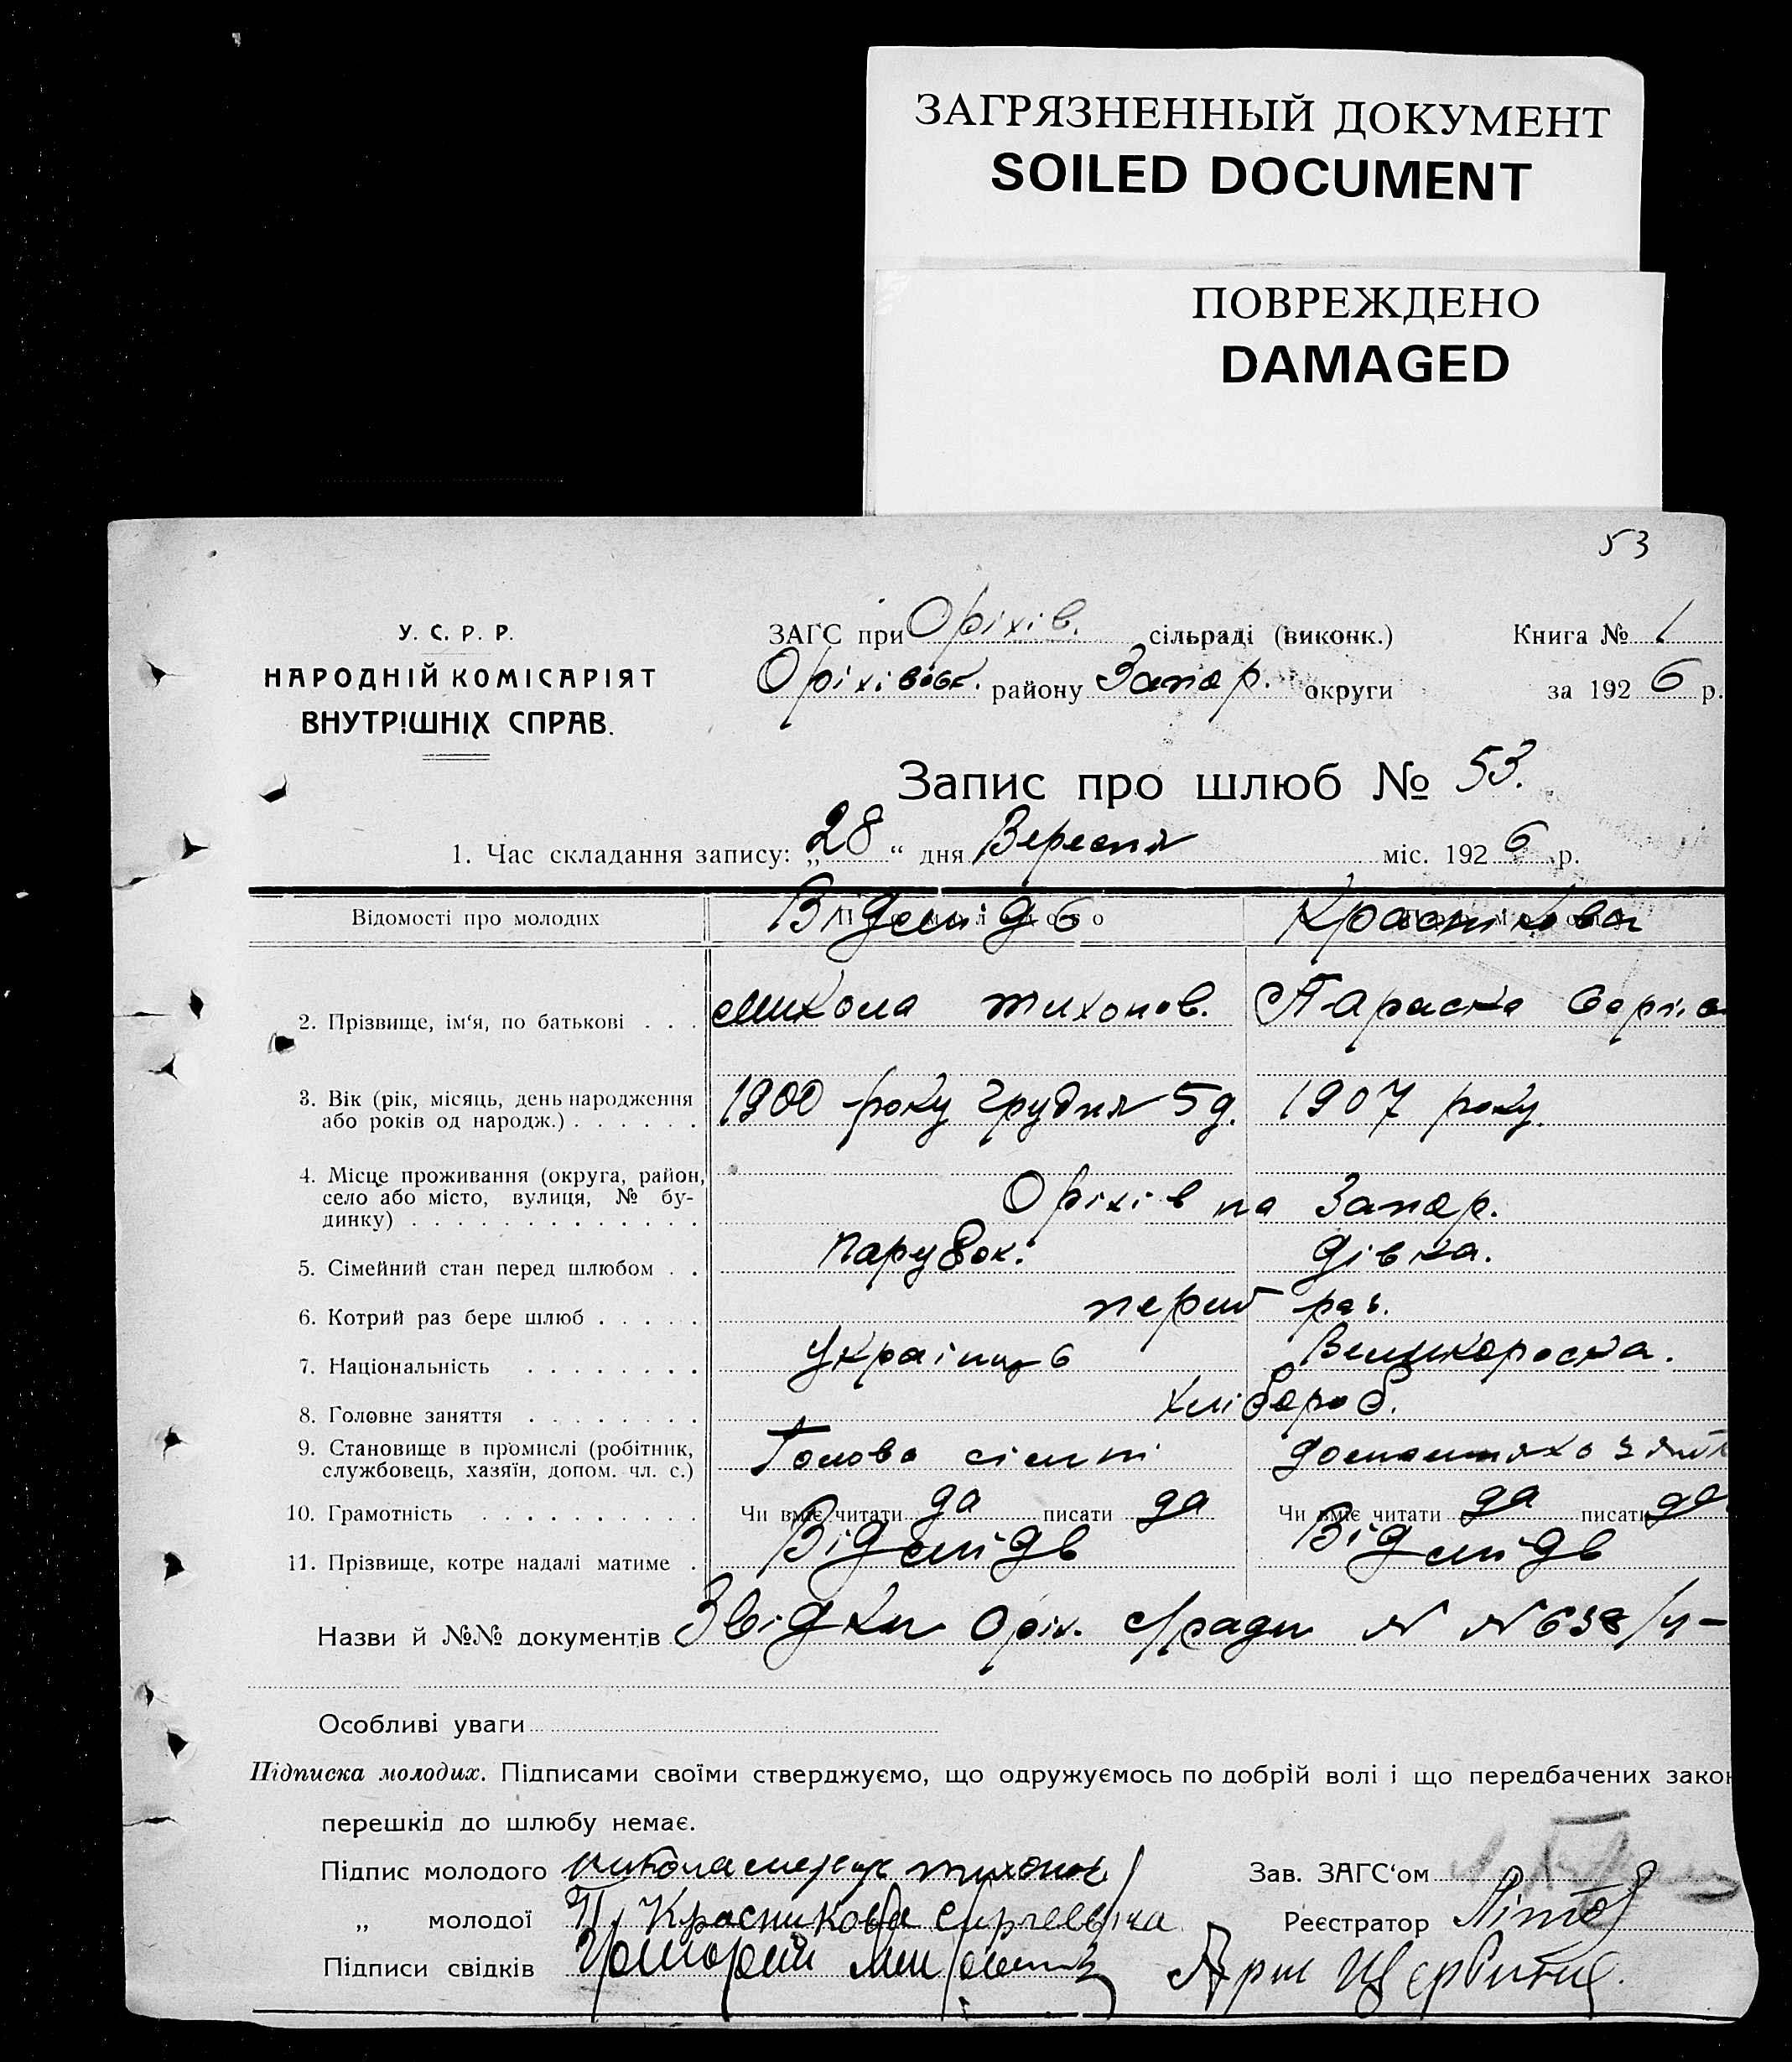 ЗАГРЯЗНЕННЫЙ ДОКУМЕНТ
SOILED DOCUMENT
ПОВРЕЖДЕНО
DAMAGED
53
У. С. Р. Р.
НАРОДНІЙ КОМІСАРІЯТ
ВНУТРІШНІХ СПРАВ.
ЗАГС при Оріхів. сільраді (виконк.) Книга № 1
Оріхівськ. району Запор. округи за 1926 р.
Запис про шлюб № 53.
1. Час складання запису: „28“ дня Вересня міс. 1926 р.
Відомості про молодих
Краснікова
2. Прізвище, ім‘я, по батькові . . . Микола Тихонов. Параска
3. Вік (рік, місяць, день народження
або років од народж.) . . . . . . 1900 року Грудня 5 д. 1907 року.
4. Місце проживання (округа, район,
село або місто, вулиця, № бу-
динку) . . . . . . . . . . . . . Оріхів на Запор.
5. Сімейний стан перед шлюбом . . Парубок. Дівка.
6. Котрий раз бере шлюб . . . . . раз.
7. Національність . . . . . . . . Українець Великороска.
8. Головне заняття . . . . . . . . Хлібороб.
9. Становище в промислі (робітник,
службовець, хазяїн, допом. чл. с.) Голова сім'ї
10. Грамотність . . . . . . . . . . Чи вміє читати да писати да Чи вміє читати да писати да
11. Прізвище, котре надалі матиме .
Назви й №№ документів Звідки Оріх. с/ради
Особливі уваги
Підписка молодих. Підписами своїми стверджуємо, що одружуємось по добрій волі і що передбачених закон
перешкід до шлюбу немає.
Підпис молодого
Зав. ЗАГС‘ом
„ молодої П. Красникова
Реєстратор
Підписи свідків Григорий